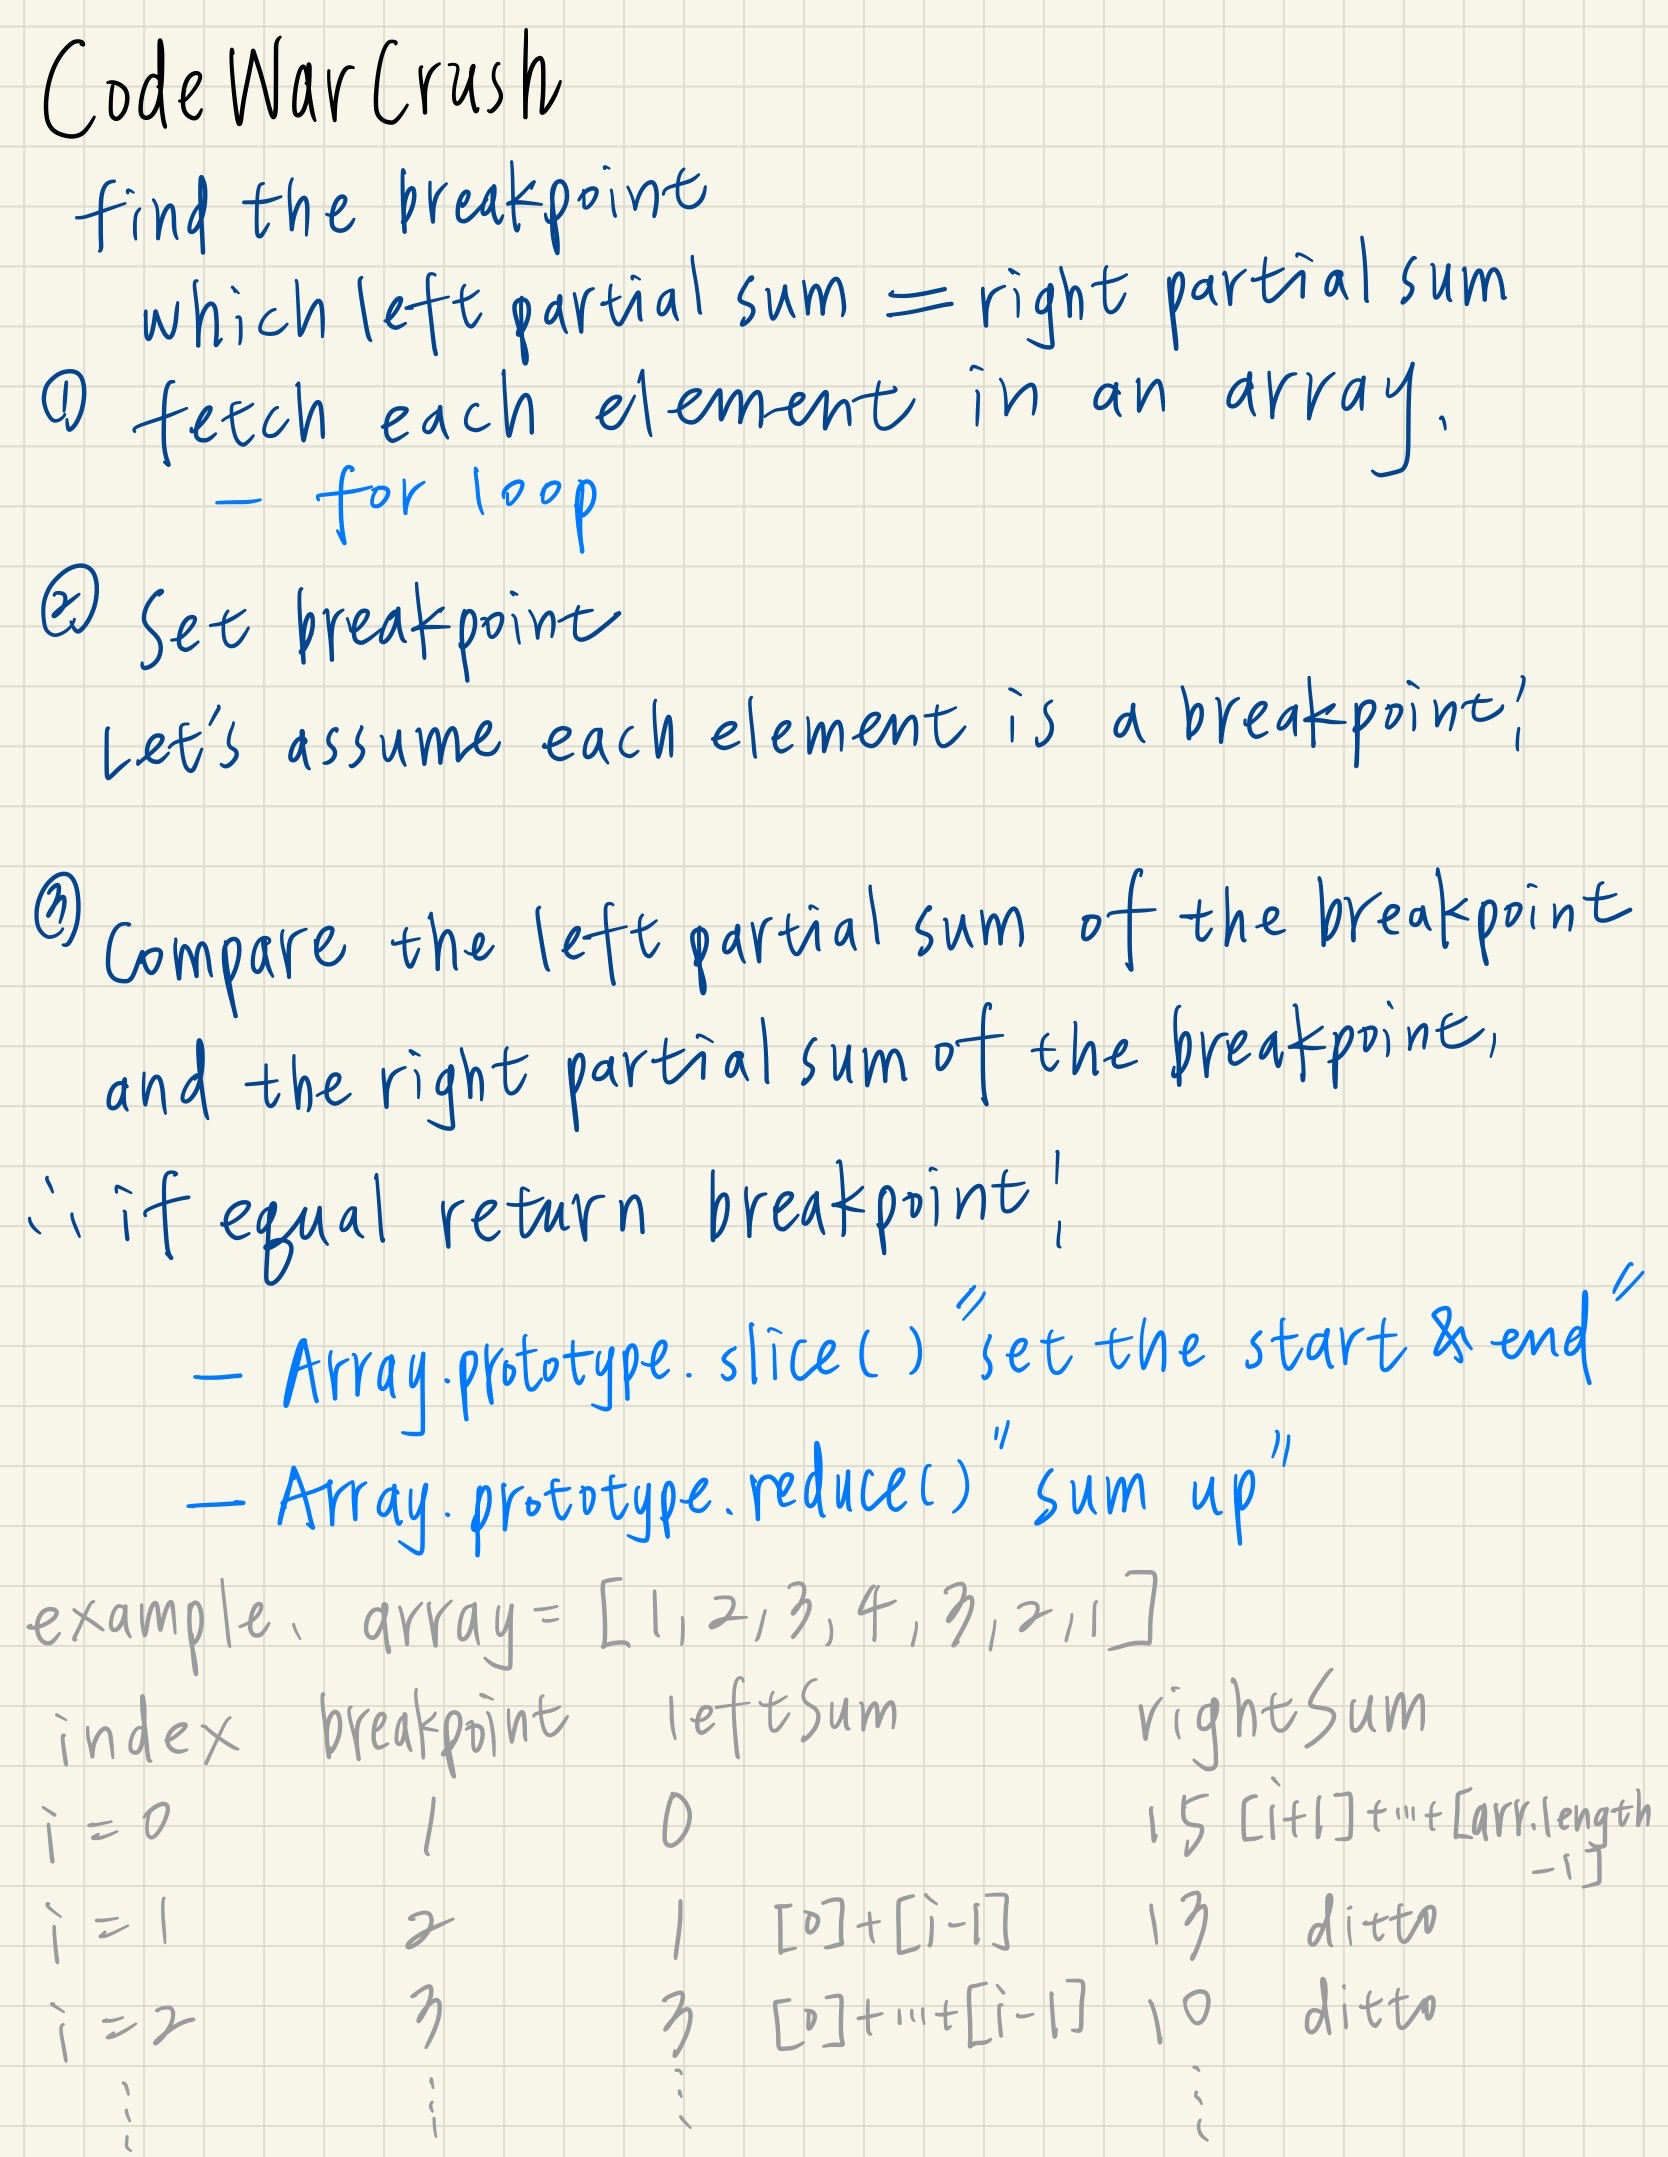 CodeWarCrush
find the breakpoint
which left partial sum = right partial sum
① fetch each element in an array.
- for loop
② Set breakpoint
Let's assume each element is a breakpoint!
③ Compare the left partial sum of the breakpoint
and the right partial sum of the breakpoint,
∴ if equal return breakpoint!
- Array.prototype.slice() "set the start & end"
- Array.prototype.reduce() "sum up"
example, array = [1,2,3,4,3,2,1]
index breakpoint leftSum rightSum
i=0 1 0 15 [i+1]+...+[arr.length
-1]
i=1 2 1 [0]+[i-1] 13 ditto
i=2 3 3 [0]+...+[i-1] 10 ditto
⋮ ⋮ ⋮ ⋮